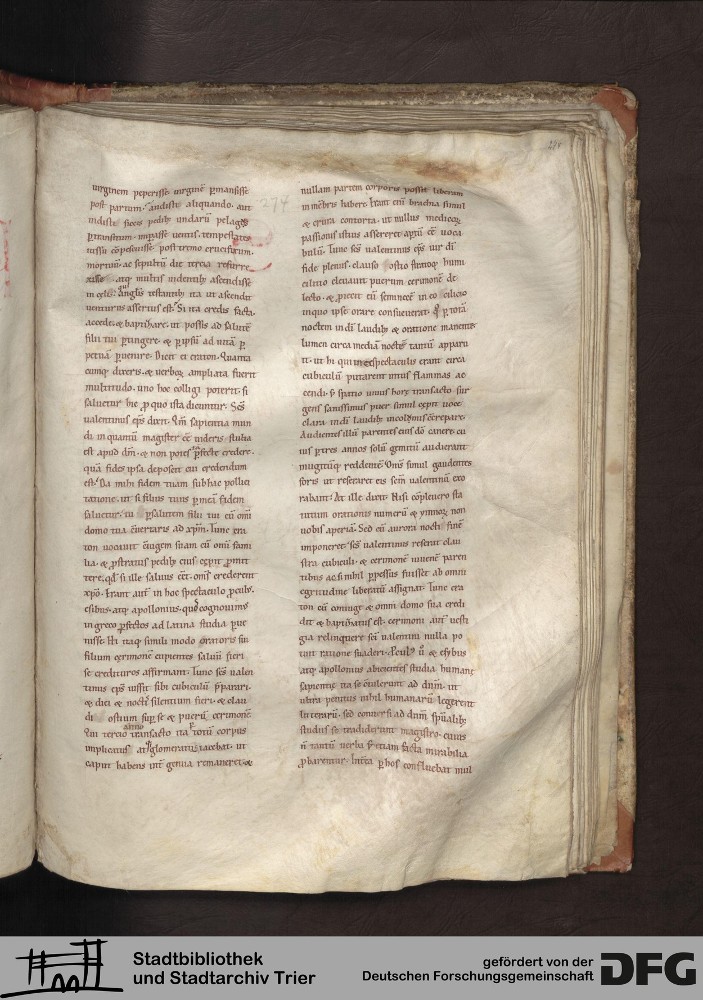 uirginem peperisse uirginē ꝑmansisse
post partum. audisti aliquando. aut
uidisti siccis pedibꝫ undarū pelagꝰ
ꝑtransitum
mortuū ac sepultū die tercia resurre
xisse. atqꝫ multis uidentibꝫ ascendisse
in celū. Angl̓is testantibꝫ ita ut ascendit
uenturus assertus est. Si ita credis facta.
accede. & baptizare. ut possis ad salutē
filii tui ꝑtingere. & ꝑ ipsū ad uitā ꝑ
petuā ꝑuenire. Dicit ei craton. Quanta
cumqꝫ dixeris. & uerboꝝ ampliata fuerit
multitudo. uno hoc colligi poterit. si
saluetur hic ꝓ quo ista dicuntur. Scs̄
ualentinus ep̄s dixit. Qm̄ sapientia mun
di in quantū magister eē uideris. stulta
est apud dm̄. & non potes ꝑfecte credere.
quā fides ipsa deposcit cui credendum
est. Da mihi fidem tuam sub hac pollici
tatione. ut si filius tuus ꝑ meā fidem
saluetur. tu ꝑ salutem filii tui cū om̄i
domo tua
ton uocauit
lia. & ꝓstratus pedibꝫ eius cepit ꝓmit
tere. qd̄ si ille saluus eēt. om̄s crederent
xpō. Erant aut̄ in hoc spectaculo ꝓculꝰ.
ephibus. atqꝫ apollonius.
in greco ꝑfectos ad latina studia ꝑue
nisse. Hi itaqꝫ simili modo oratoris
filium cerimonē cupientes saluū fieri
se credituros affirmant. Tunc scs̄ ualen
tinus ep̄s iussit sibi cubiculū p̄parari.
& die. & nocte silentium fieri. & clau
di ostium sup̄ se & puerū cerimonē.
Qui tercio anno transacto ita totū corpus
implicatus
caput habens int̄ genua remaneret. &
nullam partem corporis posset liberam
in mēbris habere. Erant eni brachia simul
& crura contorta. ut nullus medicoꝝ
passionis istius assereret aptū eē uoca
bulū. Tunc scs̄ ualentinus ep̄s uir di
fide plenus. clauso ostio strauitqꝫ humi
cilicio eleuauit puerum cerimonē de
lecto. & proiecit eū seminecē in eo cilicio
in quo ipse orare consueuerat. Et ꝑ totā
noctem in di laudibꝫ & oratione manente
lumen circa mediā noctē tantū apparu
it. ut hi qui in spectaculis erant circa
cubiculū putarent intus flammas ac
cendi. Et spatio unius horę transacto. sur
gens sanissimus puer simul cepit uoce
clara in di laudibꝫ incolomis
Audientes illū parentes eius dō canere. cu
ius ꝑ tres annos solū gemitū audierant
mugitūqꝫ reddentē. Om̄s simul gaudentes
foris ut reseraret eis scm̄ ualentinū exo
rabant. At ille dixit. Nisi cōpleuero sta
tutum orationis numerū & ymnoꝝ non
uobis aperiā. Sed cū aurora nocti finē
imponeret. scs̄ ualentinus reserat clau
stra cubiculi. & cerimonē iuuenē paren
tibus ac si nihil ꝑpessus fuisset ab omni
egritudine liberatū assignat. Tunc cra
ton cū coniuge & omni domo sua credi
dit & baptizatus est. cerimon aut̄ uesti
gia relinquere sci ualentini nulla po
tuit ratione suaderi. Pculꝰ ū & ephibus
atqꝫ apollonius abicientes studia humane
sapientie. ita se
ultra penitus nihil humanarū legerent
litterarū. sed conuersi ad dnm̄ sp̄ualibꝫ
studiis se tradiderunt magistro. cuius
n̄ tantū uerba s; etiam facta mirabilia
ꝓbarentur. ꝑ hos confluebat mul
274
Stadtbibliothek
und Stadtarchiv Trier
gefördert von der
Deutschen Forschungsgemeinschaft
DFG